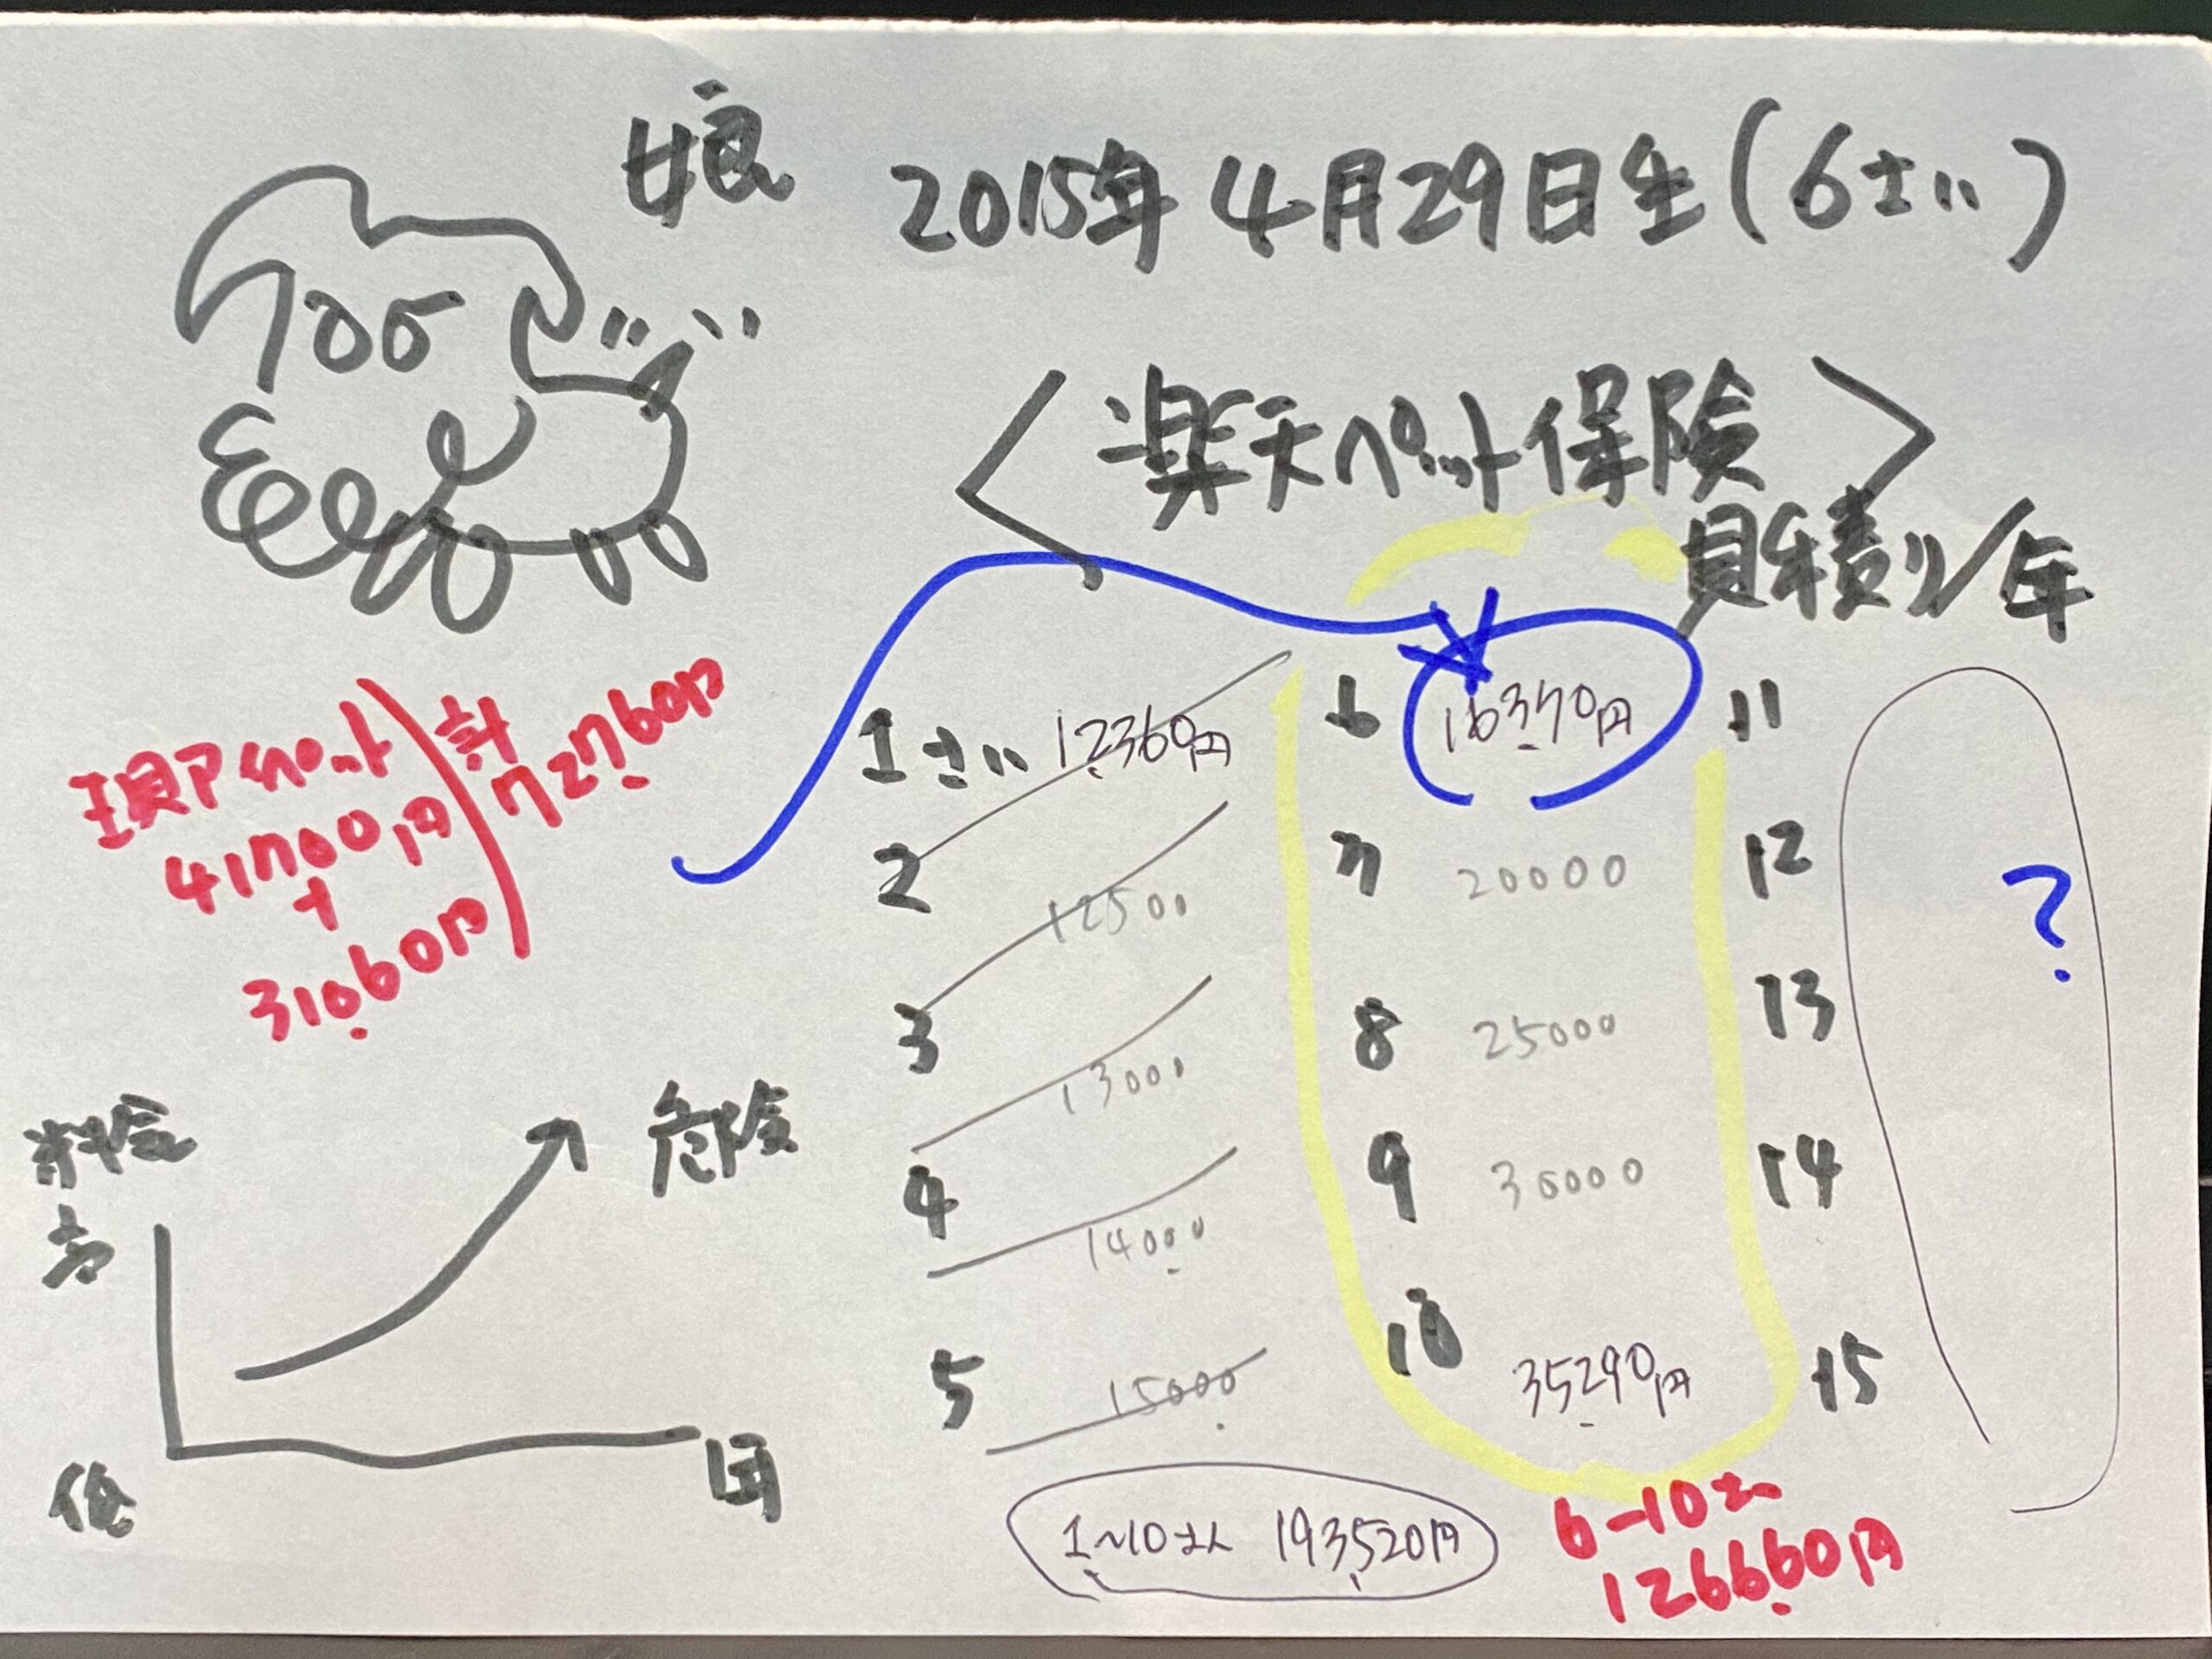 娘 2015年4月29日生(6さい)
<楽天ペット保険>
見積り/年
現アイペット
41700円
+
31060円
計
72760円
1さい 12360円
2 12500
3 13000
4 14000
5 15000
6 16370円
7 20000
8 25000
9 30000
10 35290円
11
12
13
14
15
?
1~10さい 193520円
6-10さい
126660円
料金
高
低
危険